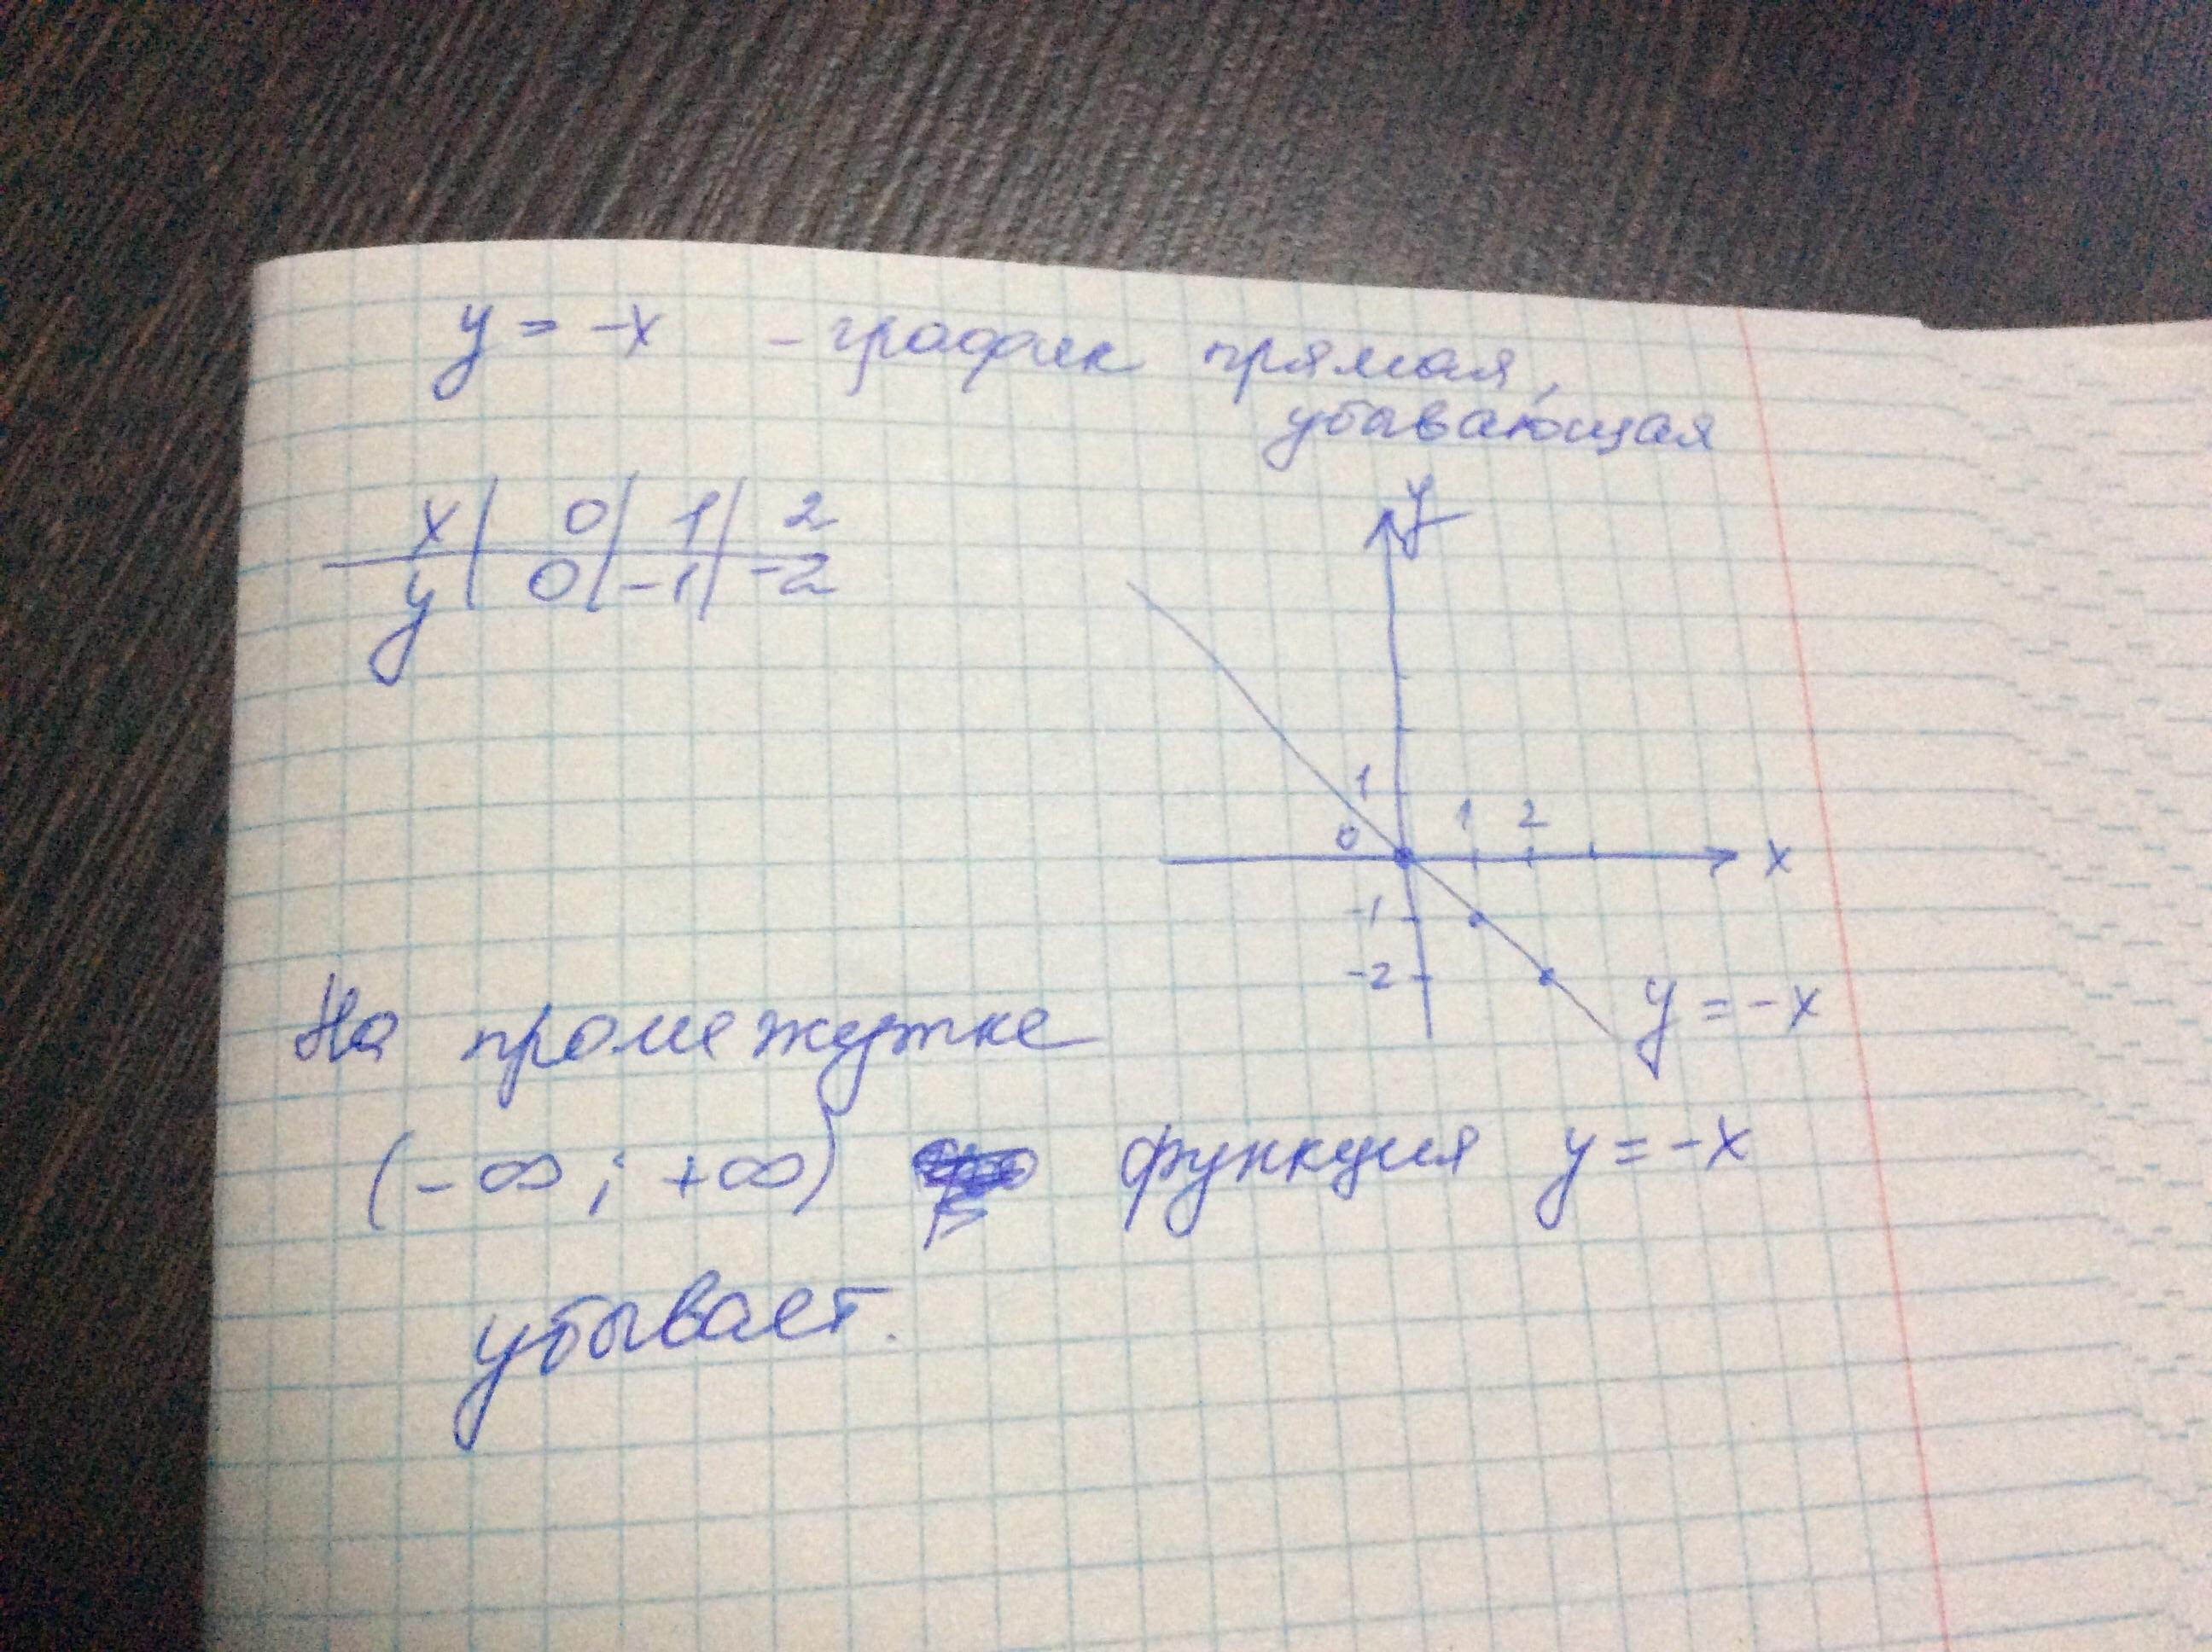 y = -x - график прямая,
убывающая
x | 0 | 1 | 2
y | 0 | -1 | -2
y
1
0 1 2 x
-1
-2
y = -x
На промежутке
(-∞; +∞) функция y = -x
убывает.